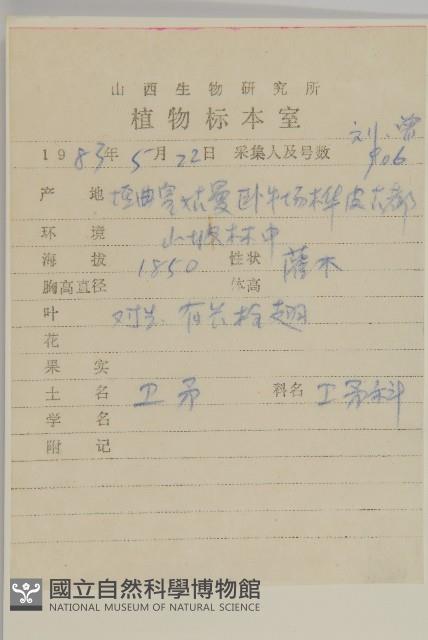 山西生物研究所
植物标本室
刘、常
1983年5月22日 采集人及号数 906
产地 垣曲 曼卧牛场桦皮
环境 山坡林中
海拔 1850 性状 灌木
胸高直径 体高
叶 对生. 有长栓翅
花
果实
土名 卫矛 科名 卫矛科
学名
附记
國立自然科學博物館
NATIONAL MUSEUM OF NATURAL SCIENCE